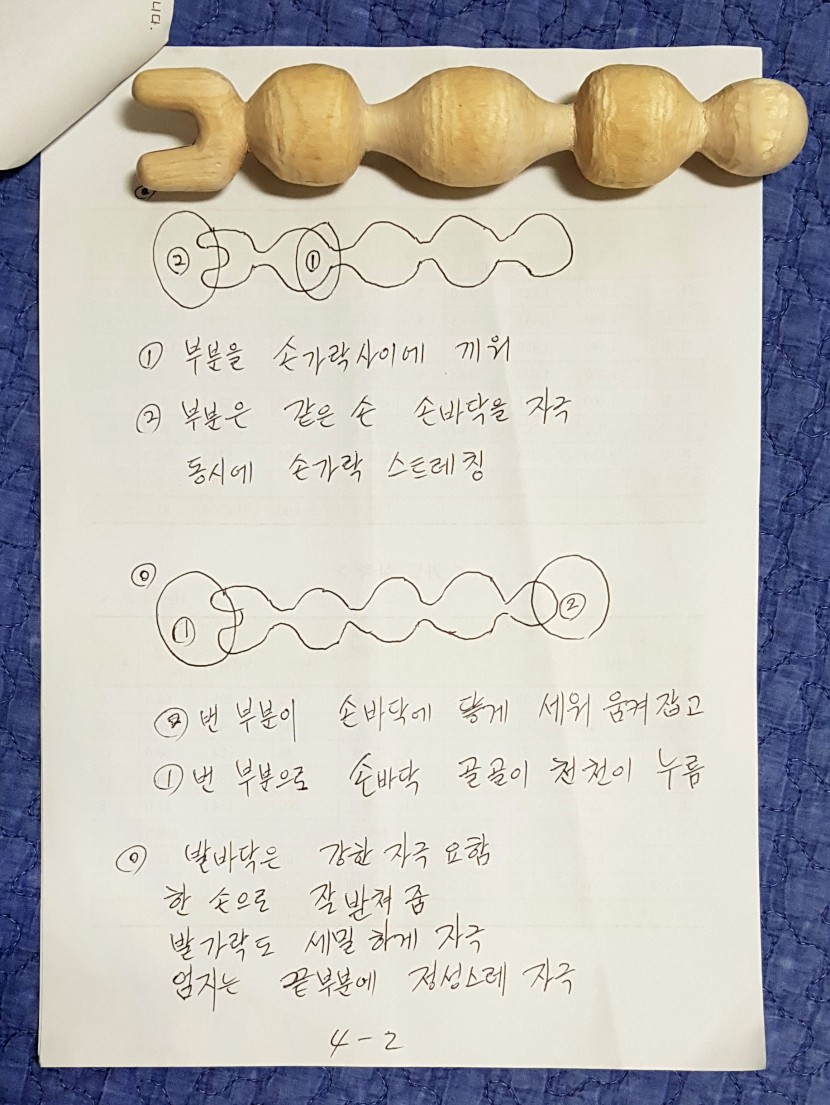 니다.
② ①
① 부분을 손가락사이에 끼워
② 부분은 같은 손 손바닥을 자극
동시에 손가락 스트레칭
① ②
② 번 부분이 손바닥에 닿게 세워 움켜잡고
① 번 부분으로 손바닥 골골이 천천이 누름
발바닥은 강한 자극 요함
한 손으로 잘 받쳐 줌
발가락도 세밀하게 자극
엄지는 끝부분에 정성스레 자극
4-2